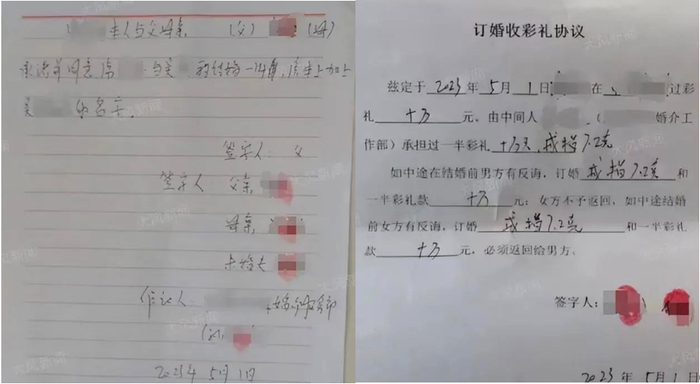 本人与父母亲 (父) (母)
承诺并同意 结婚一年后,房本上加上
的名字.
签字人
签字人 父亲
母亲
未婚夫
作证人
2023年5月1日
订婚收彩礼协议
兹定于 2023 年 5 月 1 日 在 过彩
礼 十万 元、由中间人 ( 婚介工
作部)承担过一半彩礼 十万元,戒指7.2克
如中途在结婚前男方有反诲,订婚 戒指7.2克 和
一半彩礼款 十万 元;女方不予返回,如中途结婚
前女方有反诲,订婚 戒指7.2克 和一半彩礼
款 十万 元,必须返回给男方、
签字人:
2023 年 5 月 1 日